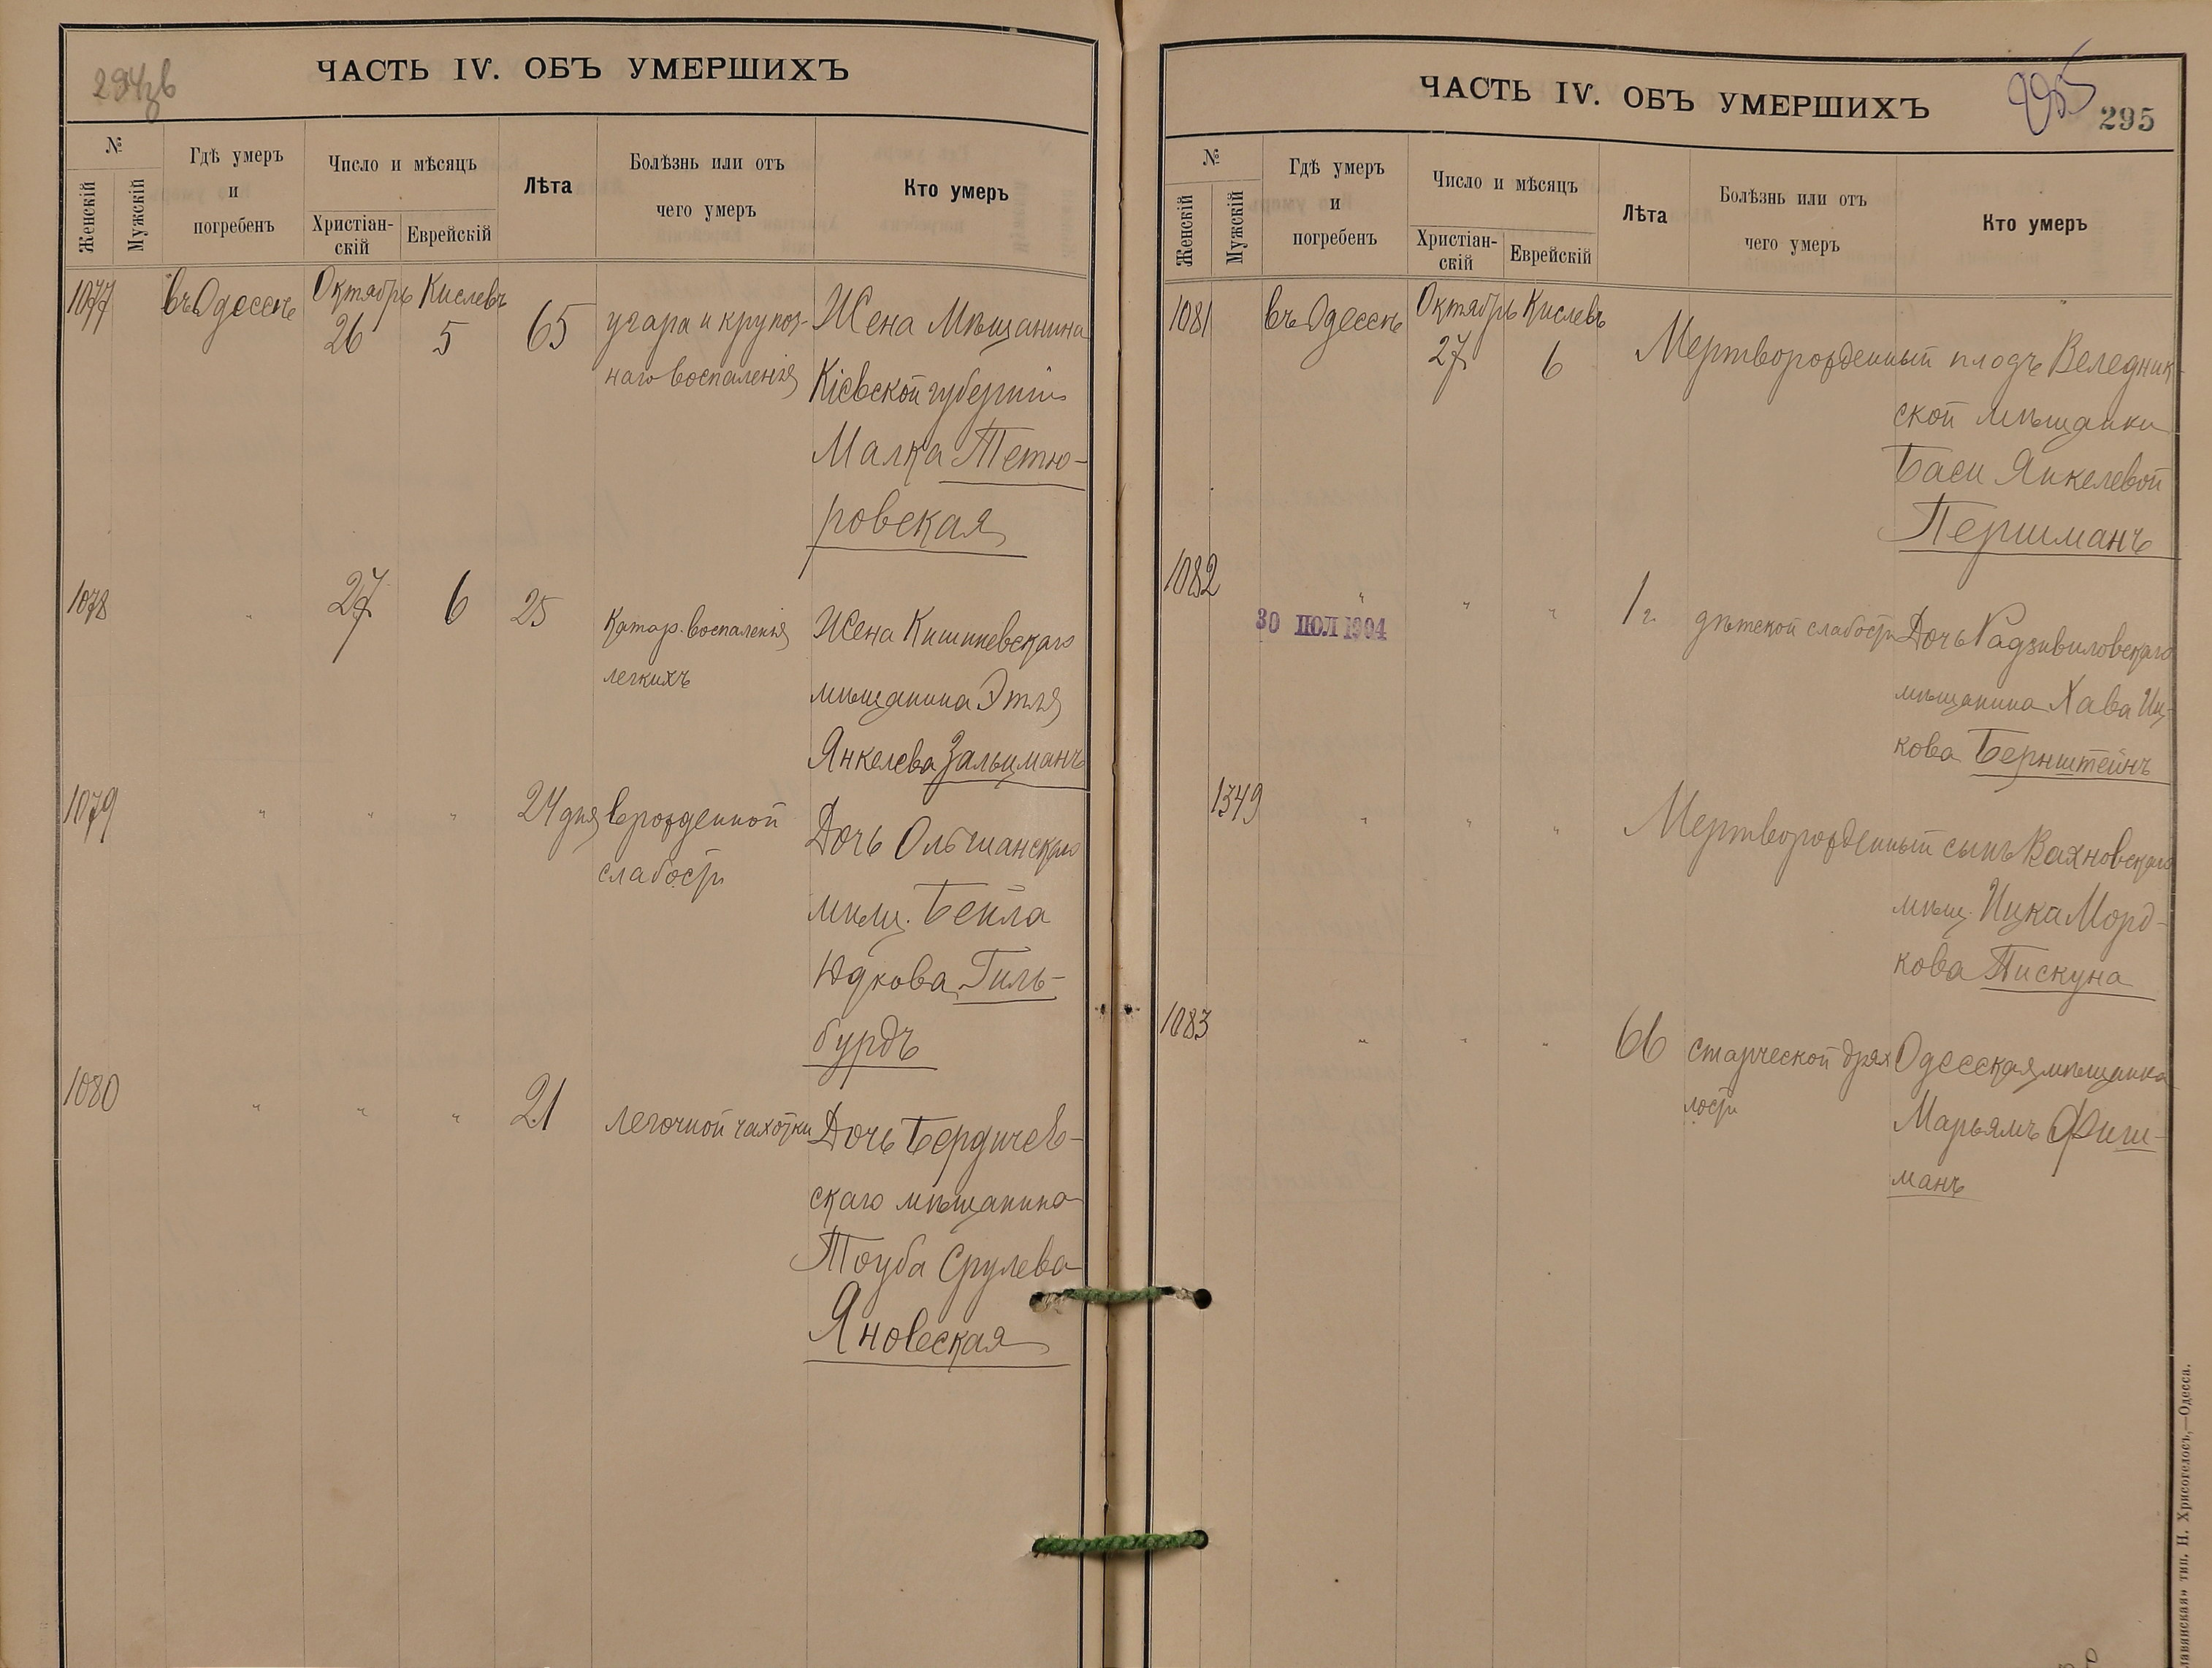 294зв
ЧАСТЬ IV. ОБЪ УМЕРШИХЪ
№
Женскій
Мужскій
Гдѣ умеръ
и
погребенъ
Число и мѣсяцъ
Христіан-
скій
Еврейскій
Лѣта
Болѣзнь или отъ
чего умеръ
Кто умеръ
1077 въ Одессѣ Октябрь 26 Кислевъ 5 65 угара и крупоз- Жена Мѣщанина
наго воспаленія Кіевской губерніи
Малка Тетю-
ровская
1078 " 27 6 25 Катар. воспаленія Жена Кишиневскаго
легкихъ мѣщанина Этля
Янкелева Зальцманъ
1079 " " " 24 дня врожденной Дочь Ольшанскаго
слабости мѣщ. Бейла
Юдкова Гиль-
бурдъ
1080 " " " 21 легочной чахотки Дочь Бердичев-
скаго мѣщанина
Тоуба Срулева
Яновская
ЧАСТЬ IV. ОБЪ УМЕРШИХЪ
295
295
№
Женскій
Мужскій
Гдѣ умеръ
и
погребенъ
Число и мѣсяцъ
Христіан-
скій
Еврейскій
Лѣта
Болѣзнь или отъ
чего умеръ
Кто умеръ
1081 въ Одессѣ Октябрь 27 Кислевъ 6 Мертворожденный плодъ Веледник-
ской мѣщанки
Баси Янкелевой
Першманъ
1082 " " " 1 г. дѣтской слабости Дочь Радзивиловскаго
30 ІЮЛ 1904
мѣщанина Хава Иц-
кова Бернштейнъ
1349 " " " Мертворожденный сынъ Вахновскаго
мѣщ. Ицка Морд-
кова Пискуна
1083 " " " 66 старческой дрях Одесская мѣщанка
лости Марьямъ Фиш-
манъ
тип. Н. Хрисогелосъ,—Одесса.